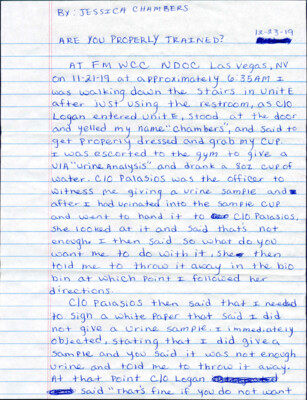 BY: JESSICA CHAMBERS
12-23-19
ARE YOU PROPERLY TRAINED?
AT FMWCC NDOC Las Vegas, NV
on 11-21-19 at approximately 6:35AM I
was walking down the stairs in Unit E
after just using the restroom, as C/O
Logan entered unit E, stood at the door
and yelled my name "Chambers", and said to
get properly dressed and grab my cup.
I was escorted to the gym to give a
U/A "Urine Analysis" and drank a 8oz cup of
water. C/O Palasios was the officer to
witness me giving a urine sample and
after I had urinated into the sample cup
and went to hand it to C/O Palasios,
she looked at it and said thats not
enough. I then said so what do you
want me to do with it, she then
told me to throw it away in the bio
bin at which point I followed her
directions.
C/O Palasios then said that I needed
to sign a white paper that said I did
not give a urine sample. I immediately
objected, stating that I did give a
sample and you said it was not enough
urine and told me to throw it away.
At that point C/O Logan
said "That's fine if you do not want